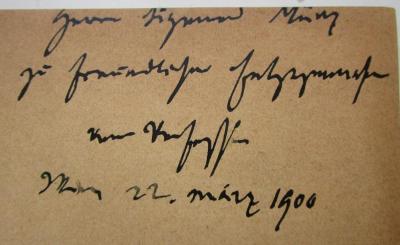 Herrn Sigmund Münz
zu freundlicher
vom Verfasser
Wien 22. März 1900